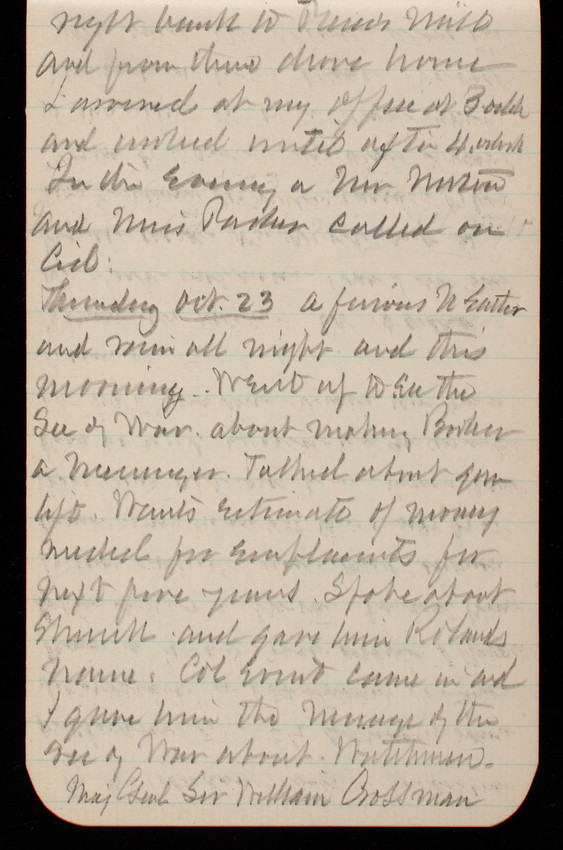 right bank to Pierces Mill
and from there drove home
I arrived at my office at 3 oclk
and worked until after 4 oclock
In the Evening a Mr
and Miss Parker called on
Thursday Oct. 23 a furious N Easter
and rain all night and this
morning. Went up to See the
Sec of War. about making
a Messenger. Talked about gun
lift. Wants Estimate of money
needed for Emplacements for
next five years. Spoke about
and gave him
name. Col came in and
I gave him the Message of the
Sec of War about Watchmen.
Maj Genl Sir William Crossman